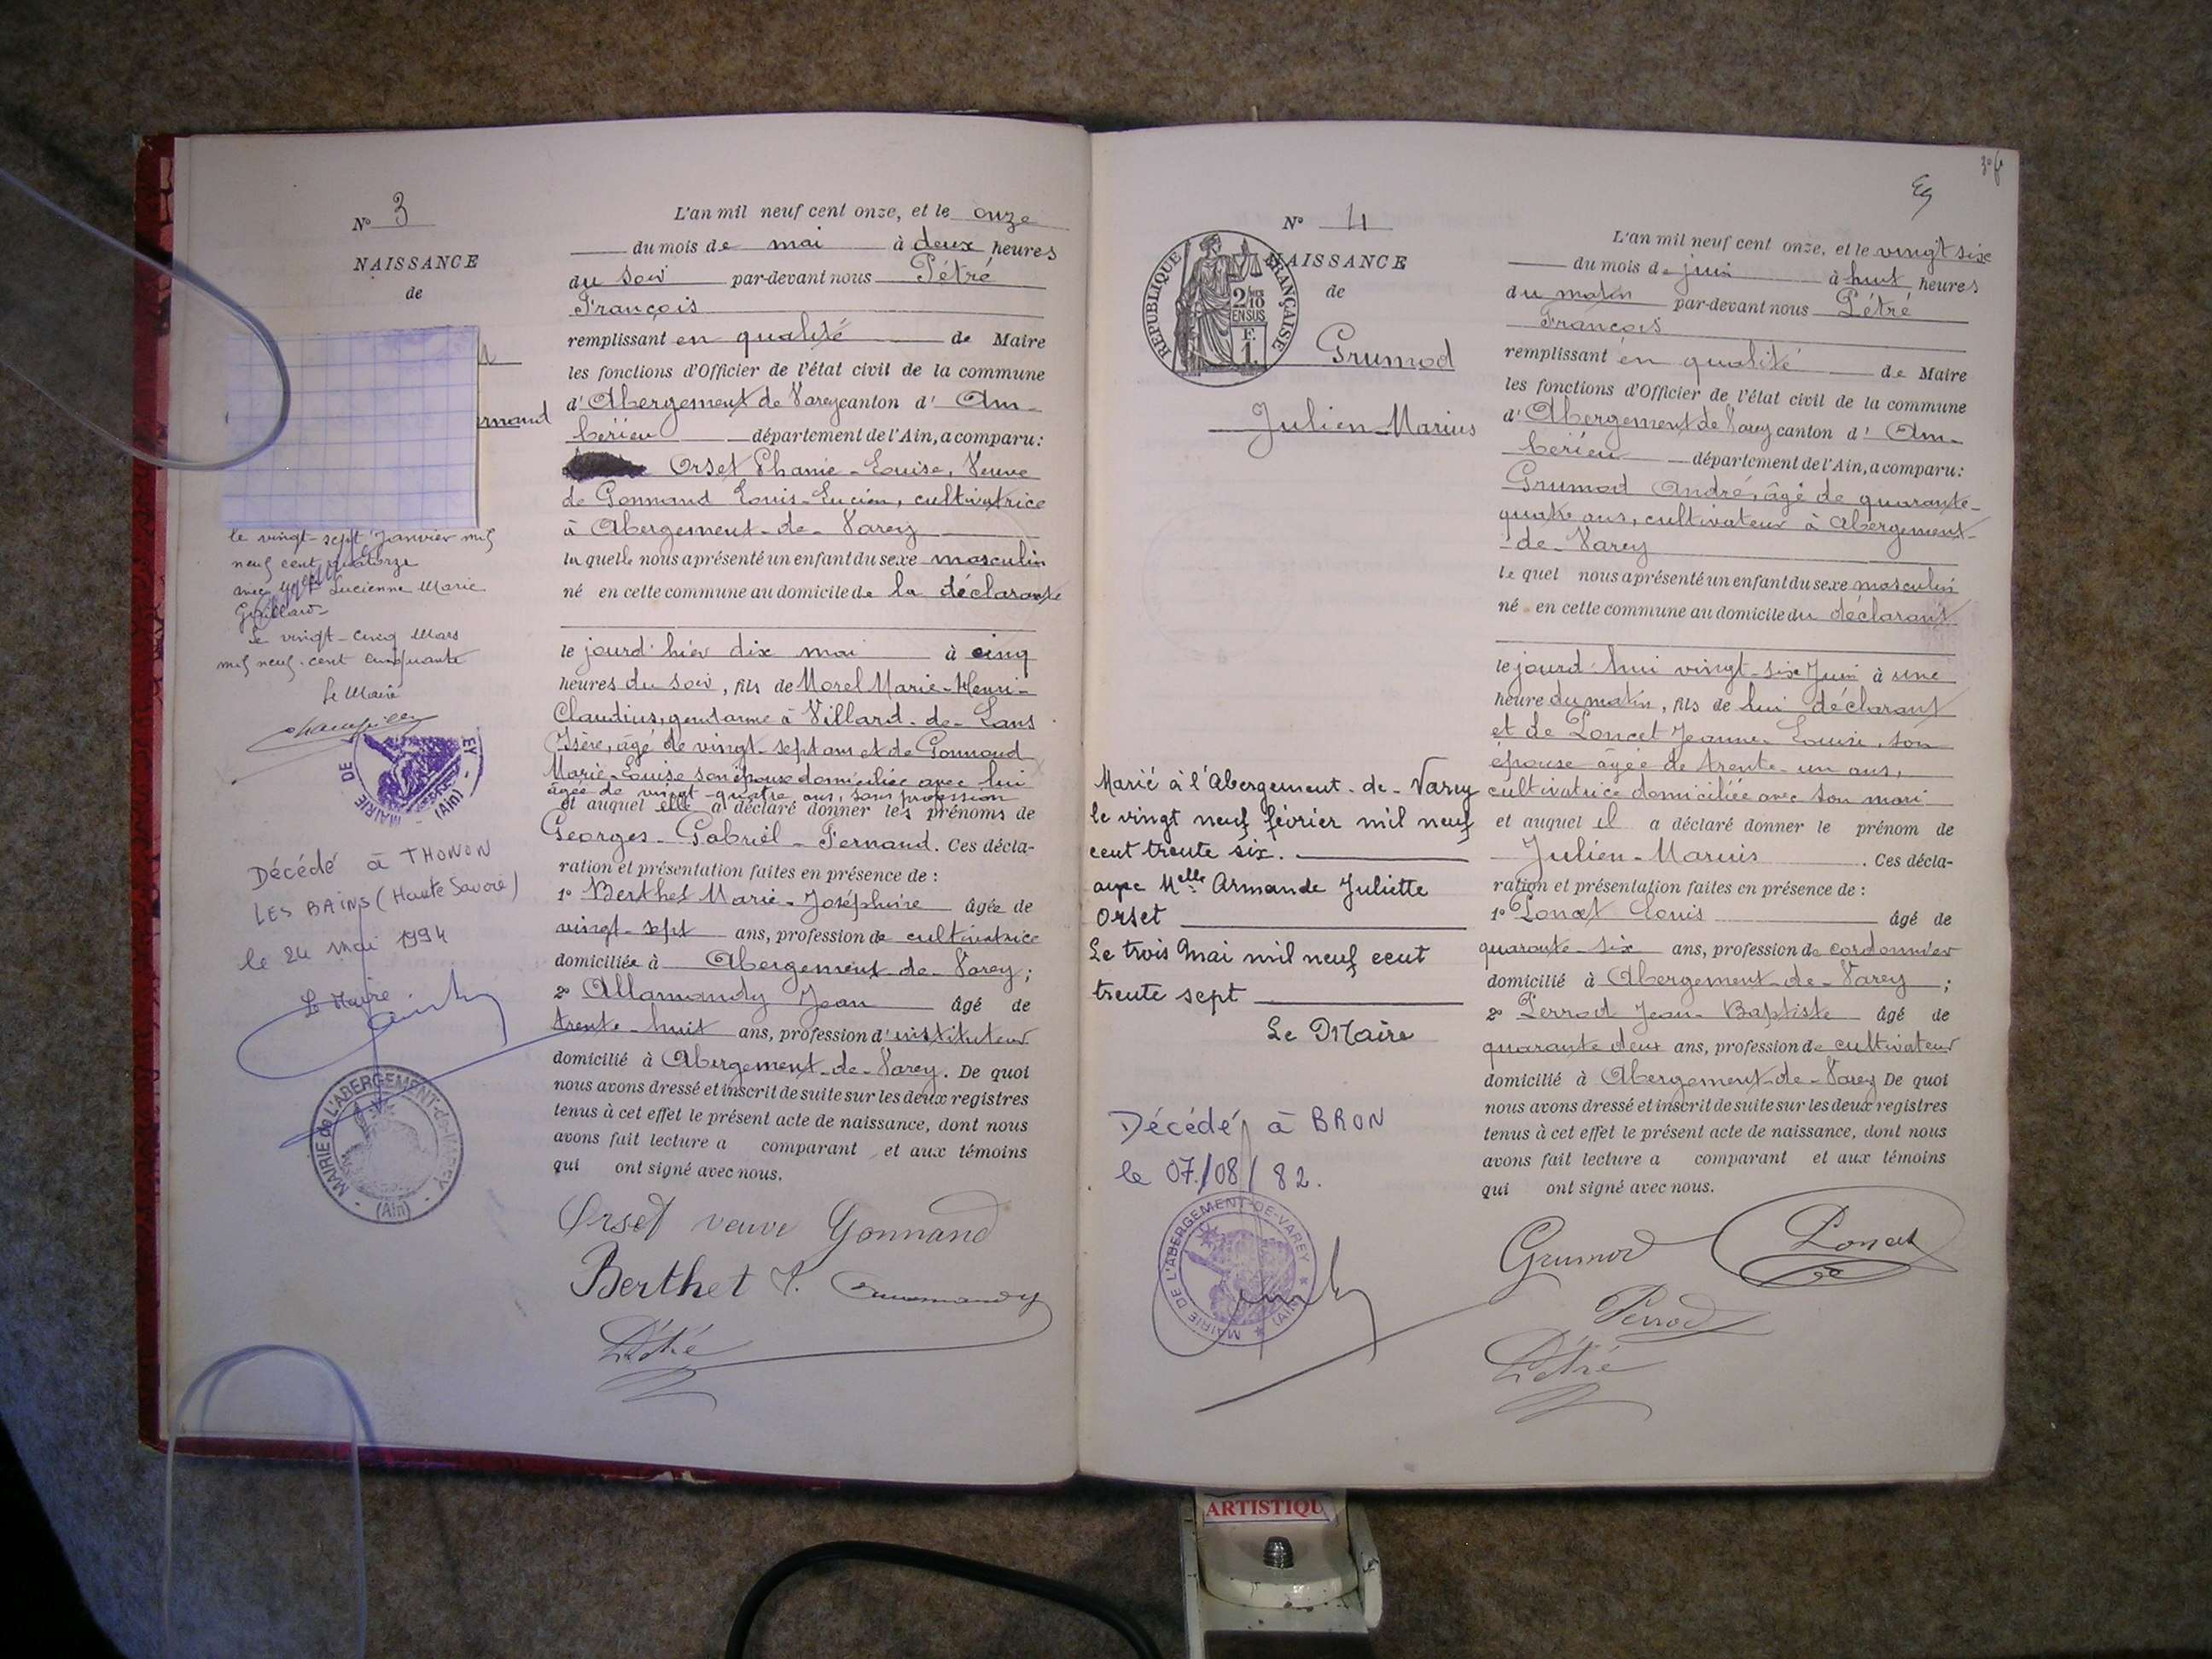 Nº 3
NAISSANCE
de
rnand
le vingt-sept Janvier mil
neuf cent quatorze
avec Lucienne Marie
Gaillard
Le vingt-cinq Mars
mil neuf cent cinquante
Le Maire
MAIRIE DE EY - (Ain) -
Décédé à THONON
LES BAINS (Haute Savoie)
le 24 mai 1994
Le Maire
MAIRIE de L'ABERGEMENT-de-VAREY - (Ain) -
L'an mil neuf cent onze, et le onze
du mois de mai à deux heures
du soir par-devant nous Pétré
François
remplissant en qualité de Maire
les fonctions d'Officier de l'état civil de la commune
d'Abergement de Varey canton d'Am-
bérieu département de l'Ain, a comparu:
Orset Phanie-Louise, Veuve
de Gonnand Louis-Lucien, cultivatrice
à Abergement-de-Varey
la quelle nous a présenté un enfant du sexe masculin
né en cette commune au domicile de la déclarante
le jourd'hier dix mai à cinq
heures du soir, fils de Morel Marie-Henri-
Claudius, gendarme à Villard-de-Lans
Isère, âgé de vingt-sept ans et de Gonnand
Marie-Louise son épouse domiciliée avec lui
âgée de vingt-quatre ans, sans profession
et auquel elle a déclaré donner les prénoms de
Georges-Gabriel-Fernand. Ces décla-
ration et présentation faites en présence de :
1º Berthet Marie-Joséphine âgée de
vingt-sept ans, profession de cultivatrice
domiciliée à Abergement de-Varey ;
2º Allamandy Jean âgé de
trente-huit ans, profession d'instituteur
domicilié à Abergement-de-Varey. De quoi
nous avons dressé et inscrit de suite sur les deux registres
tenus à cet effet le présent acte de naissance, dont nous
avons fait lecture a comparant et aux témoins
qui ont signé avec nous.
Orset veuve Gonnand
Berthet
Pétré
Nº 4
NAISSANCE
de
RÉPUBLIQUE FRANÇAISE
2/10
EN SUS
F.
1.
Grumod
Julien-Marius
Marié à l'Abergement-de-Varey
le vingt neuf février mil neuf
cent trente six.
avec Melle Armande Juliette
Orset
Le trois Mai mil neuf cent
trente sept
Le Maire
Décédé à BRON
le 07/08/82.
MAIRIE DE L'ABERGEMENT-DE-VAREY * (AIN) *
L'an mil neuf cent onze, et le vingt six
du mois de juin à huit heures
du matin par-devant nous Pétré
François
remplissant en qualité de Maire
les fonctions d'Officier de l'état civil de la commune
d'Abergement de Varey canton d'Am-
bérieu département de l'Ain, a comparu:
Grumod André, âgé de quarante-
quatre ans, cultivateur à Abergement-
-de-Varey
le quel nous a présenté un enfant du sexe masculin
né en cette commune au domicile du déclarant
le jourd'hui vingt-six Juin à une
heure du matin, fils de lui déclarant
et de Poncet Jeanne Louise, son
épouse âgée de trente-un ans,
cultivatrice domiciliée avec son mari
et auquel il a déclaré donner le prénom de
Julien-Marius. Ces décla-
ration et présentation faites en présence de :
1º Poncet Louis âgé de
quarante-six ans, profession de cordonnier
domicilié à Abergement-de-Varey ;
2º Perrod Jean-Baptiste âgé de
quarante deux ans, profession de cultivateur
domicilié à Abergement-de-Varey De quoi
nous avons dressé et inscrit de suite sur les deux registres
tenus à cet effet le présent acte de naissance, dont nous
avons fait lecture a comparant et aux témoins
qui ont signé avec nous.
Grumod Poncet
Perrod
Pétré
ARTISTIQU